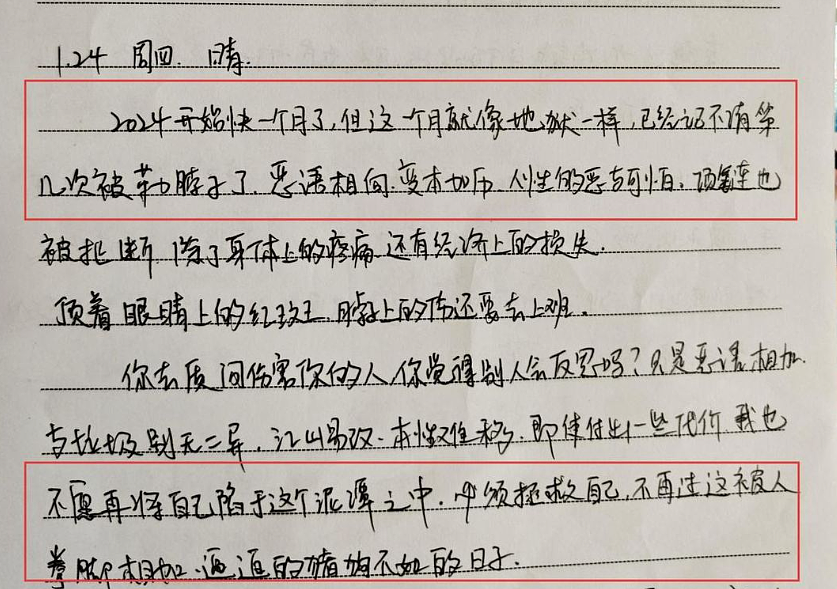 1.24 周四. 晴.
2024开始快一个月了,但这一个月就像地狱一样,已经记不清第
几次被勒脖子了.恶语相向.变本加厉.人性的恶与可怕.项链也
被扯断 除了身体上的疼痛 还有经济上的损失.
顶着眼睛上的红斑,脖子上的伤还要去上班.
你去质问伤害你的人,你觉得别人会反思吗?只是恶语相加.
与垃圾别无二异.江山易改.本性难移,即使付出一些代价 我也
不愿再将自己陷于这个泥潭之中.必须拯救自己,不再过这被人
拳脚相加.逼逼的猪狗不如的日子.